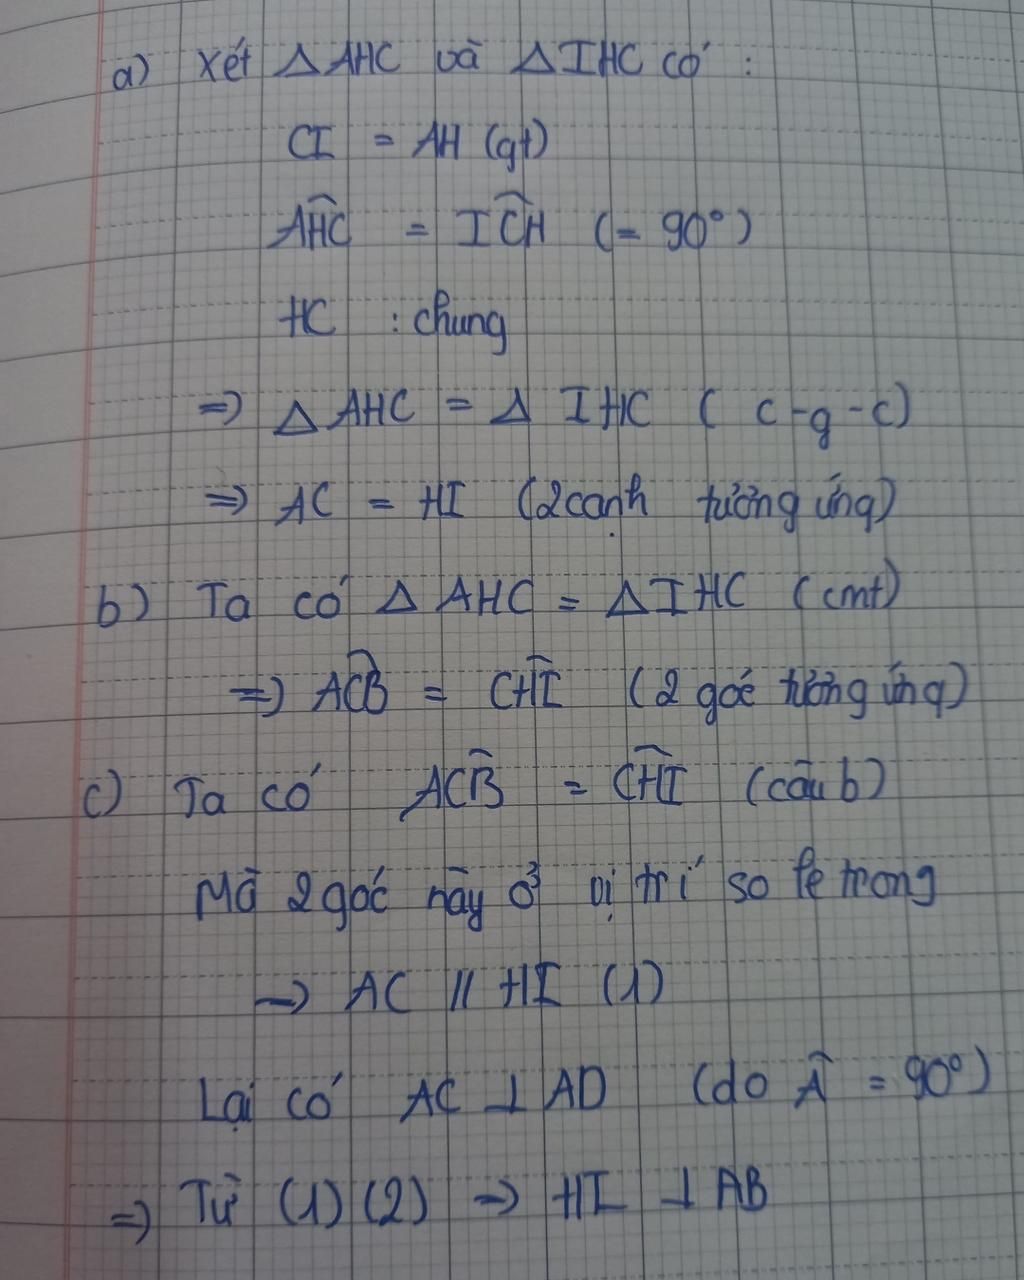 a) Xét △AHC và △IHC có :
CI = AH (gt)
AĤC = IĈH (= 90°)
HC : chung
=> △ AHC = △ IHC ( c-g-c)
=> AC = HI (2 cạnh tương ứng)
b) Ta có △ AHC = △IHC (cmt)
=> AĈB = CĤI (2 góc tương ứng)
c) Ta có AĈB = CĤI (câu b)
Mà 2 góc này ở vị trí so le trong
→ AC // HI (1)
Lại có AC ⊥ AD (do Â = 90°)
=> Từ (1) (2) → HI ⊥ AB